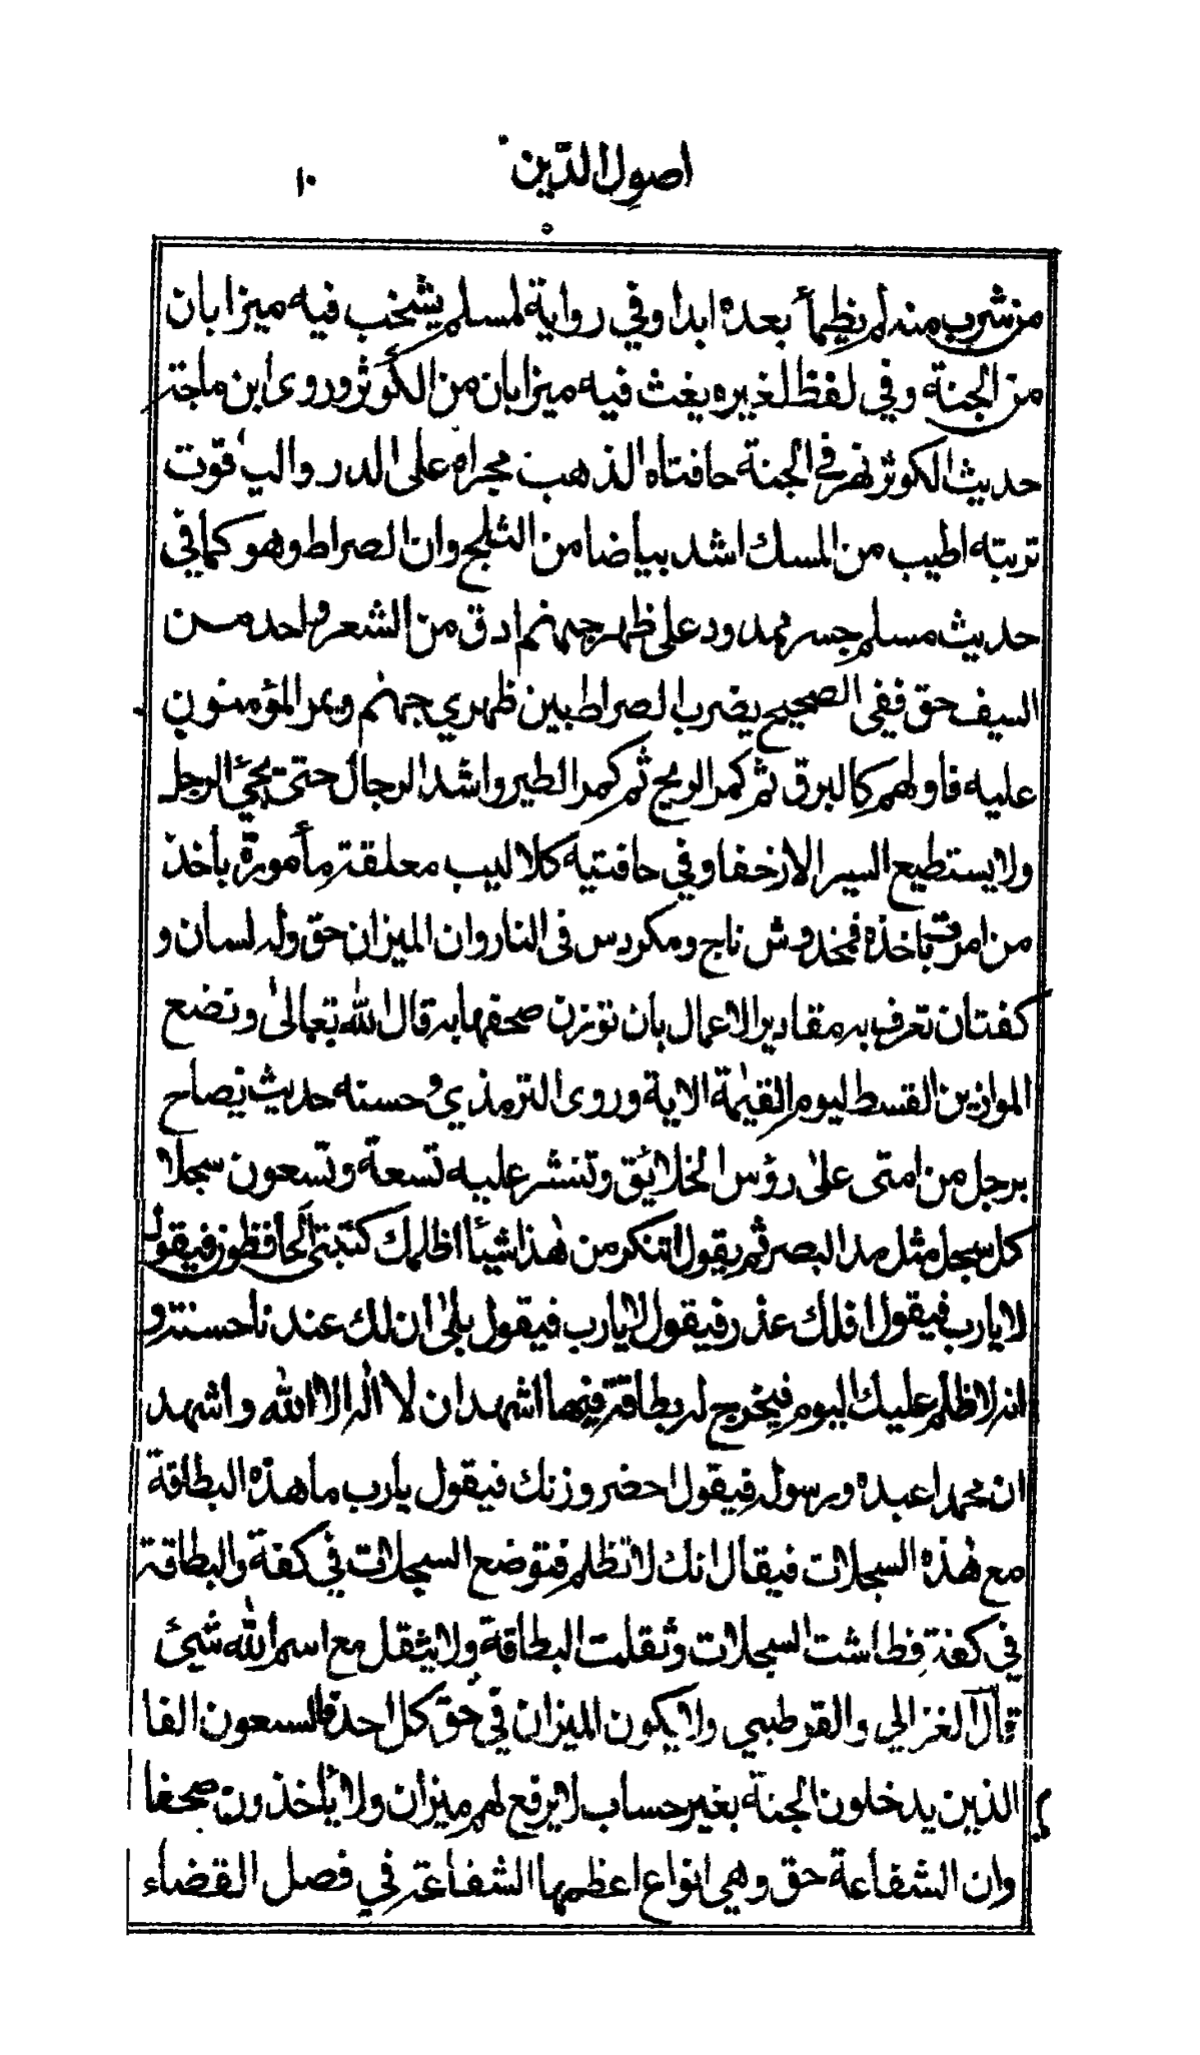 اصول الدين
١٠
من شرب منه لم يظمأ بعده ابدا وفي رواية لمسلم يشخب فيه ميزابان
من الجنة وفي لفظ لغيره يغث فيه ميزابان من الكوثر وروى ابن ماجة
حديث الكوثر نهر في الجنة حافتاه الذهب مجراه على الدر والياقوت
تربته اطيب من المسك اشد بياضا من الثلج وان الصراط وهو كما في
حديث مسلم جسر ممدود على ظهر جهنم ادق من الشعر واحد من
السيف حق ففي الصحيح يضرب الصراط بين ظهري جهنم ويمر المؤمنون
عليه فاولهم كالبرق ثم كمر الريح ثم كمر الطير واشد الرجال حتى يجئ الرجل
ولا يستطيع السير الا زحفا وفي حافتيه كلاليب معلقة مأمورة بأخذ
من امرت بأخذه فمخدوش ناج ومكردس في النار وان الميزان حق وله لسان و
كفتان تعرف به مقادير الاعمال بان توزن صحفها به قال الله تعالى ونضع
الموازين القسط ليوم القيٰمة الاية وروى الترمذي وحسنه حديث يصاح
برجل من امتى على رؤس الخلائق وتنشر عليه تسعة وتسعون سجلا
كل سجل مثل مد البصر ثم يقول اتنكر من هٰذا شيئا اظلمك كتبتى الحافظون فيقول
لا يارب فيقول افلك عذر فيقول لا يارب فيقول بلى ان لك عندنا حسنة و
انه لا ظلم عليك اليوم فيخرج له بطاقة فيها اشهد ان لا اله الا الله واشهد
ان محمدا عبده ورسوله فيقول احضر وزنك فيقول يارب ما هذه البطاقة
مع هٰذه السجلات فيقال انك لا تظلم فتوضع السجلات في كفة والبطاقة
في كفة فطاشت السجلات وثقلت البطاقة ولا يثقل مع اسم الله شيئ
قال الغزالي والقرطبي ولا يكون الميزان في حق كل احد فالسبعون الفا
الذين يدخلون الجنة بغير حساب لا يرفع لهم ميزان ولا يأخذون صحفا
وان الشفاعة حق وهي انواع اعظمها الشفاعة في فصل القضاء